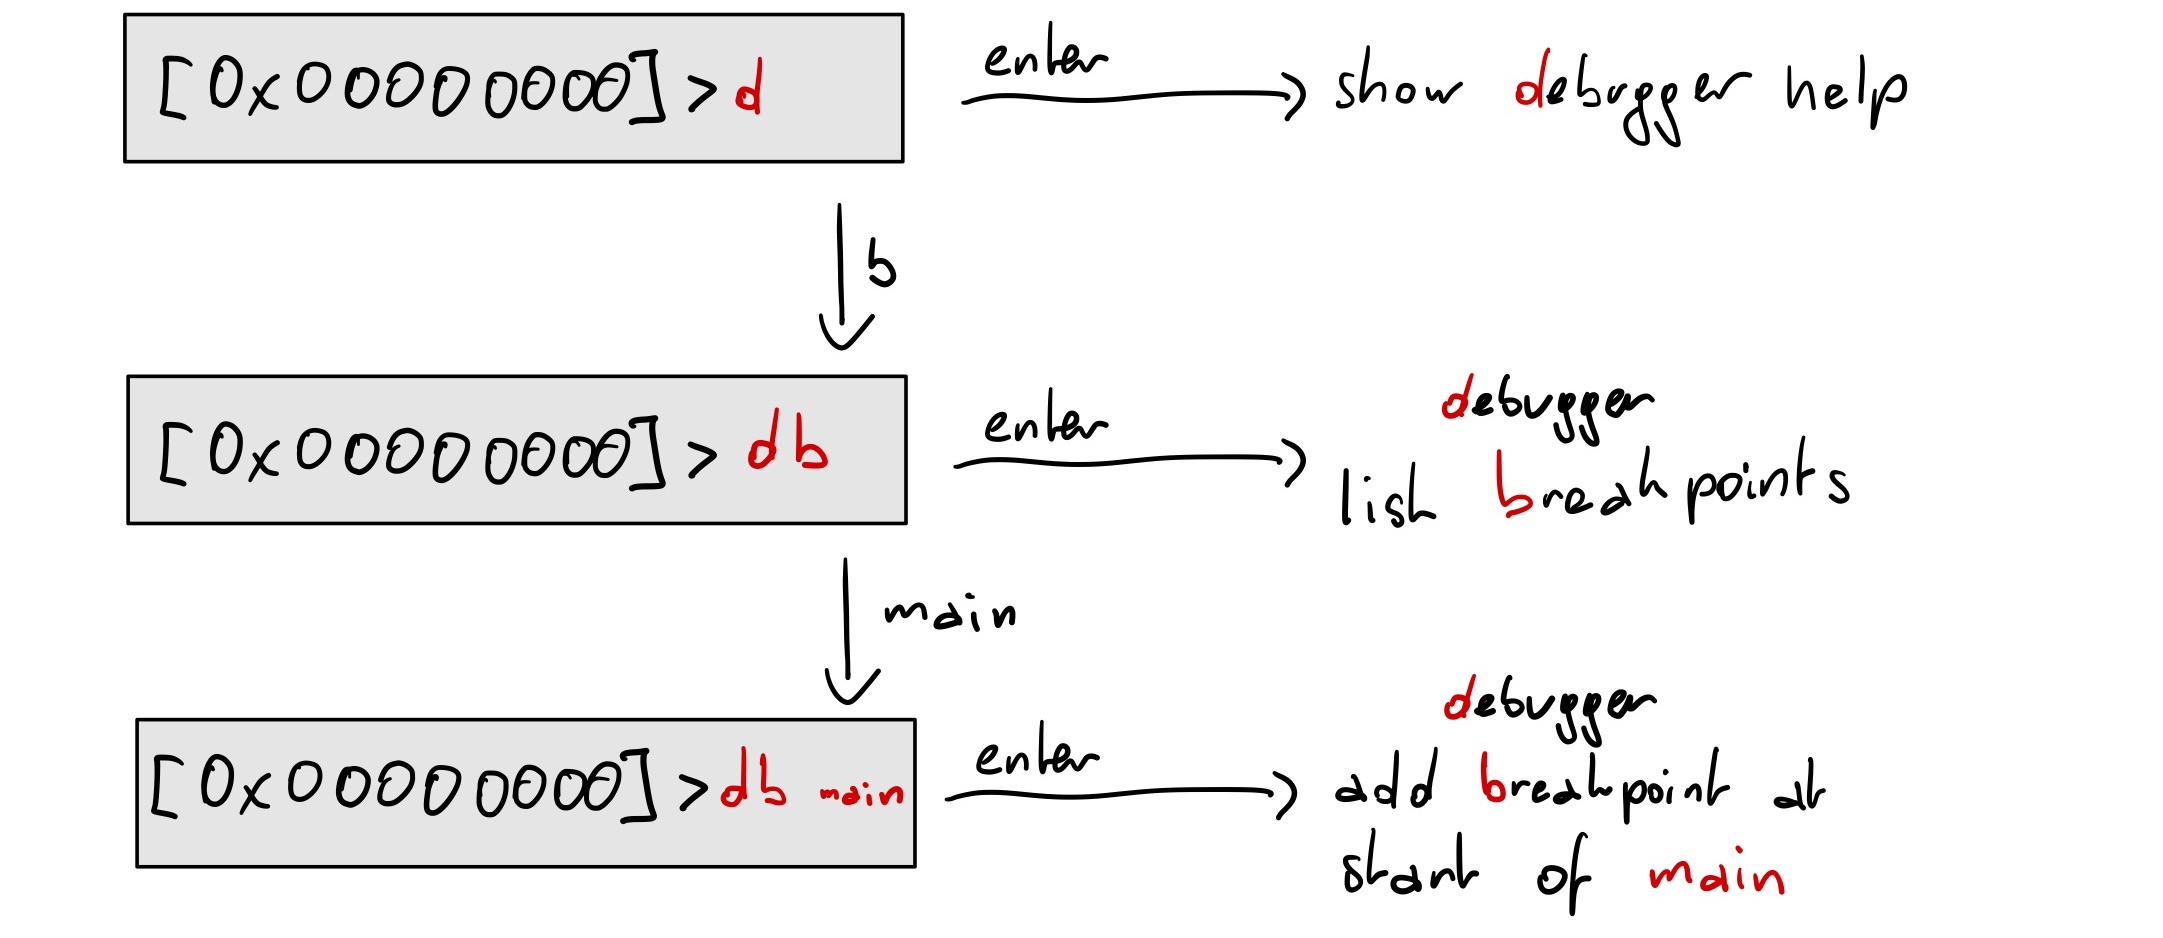 [0x00000000]>d
enter
show debugger help
b
[0x00000000]> db
enter
debugger
list breakpoints
main
[0x00000000]>db main
enter
debugger
add breakpoint at
start of main